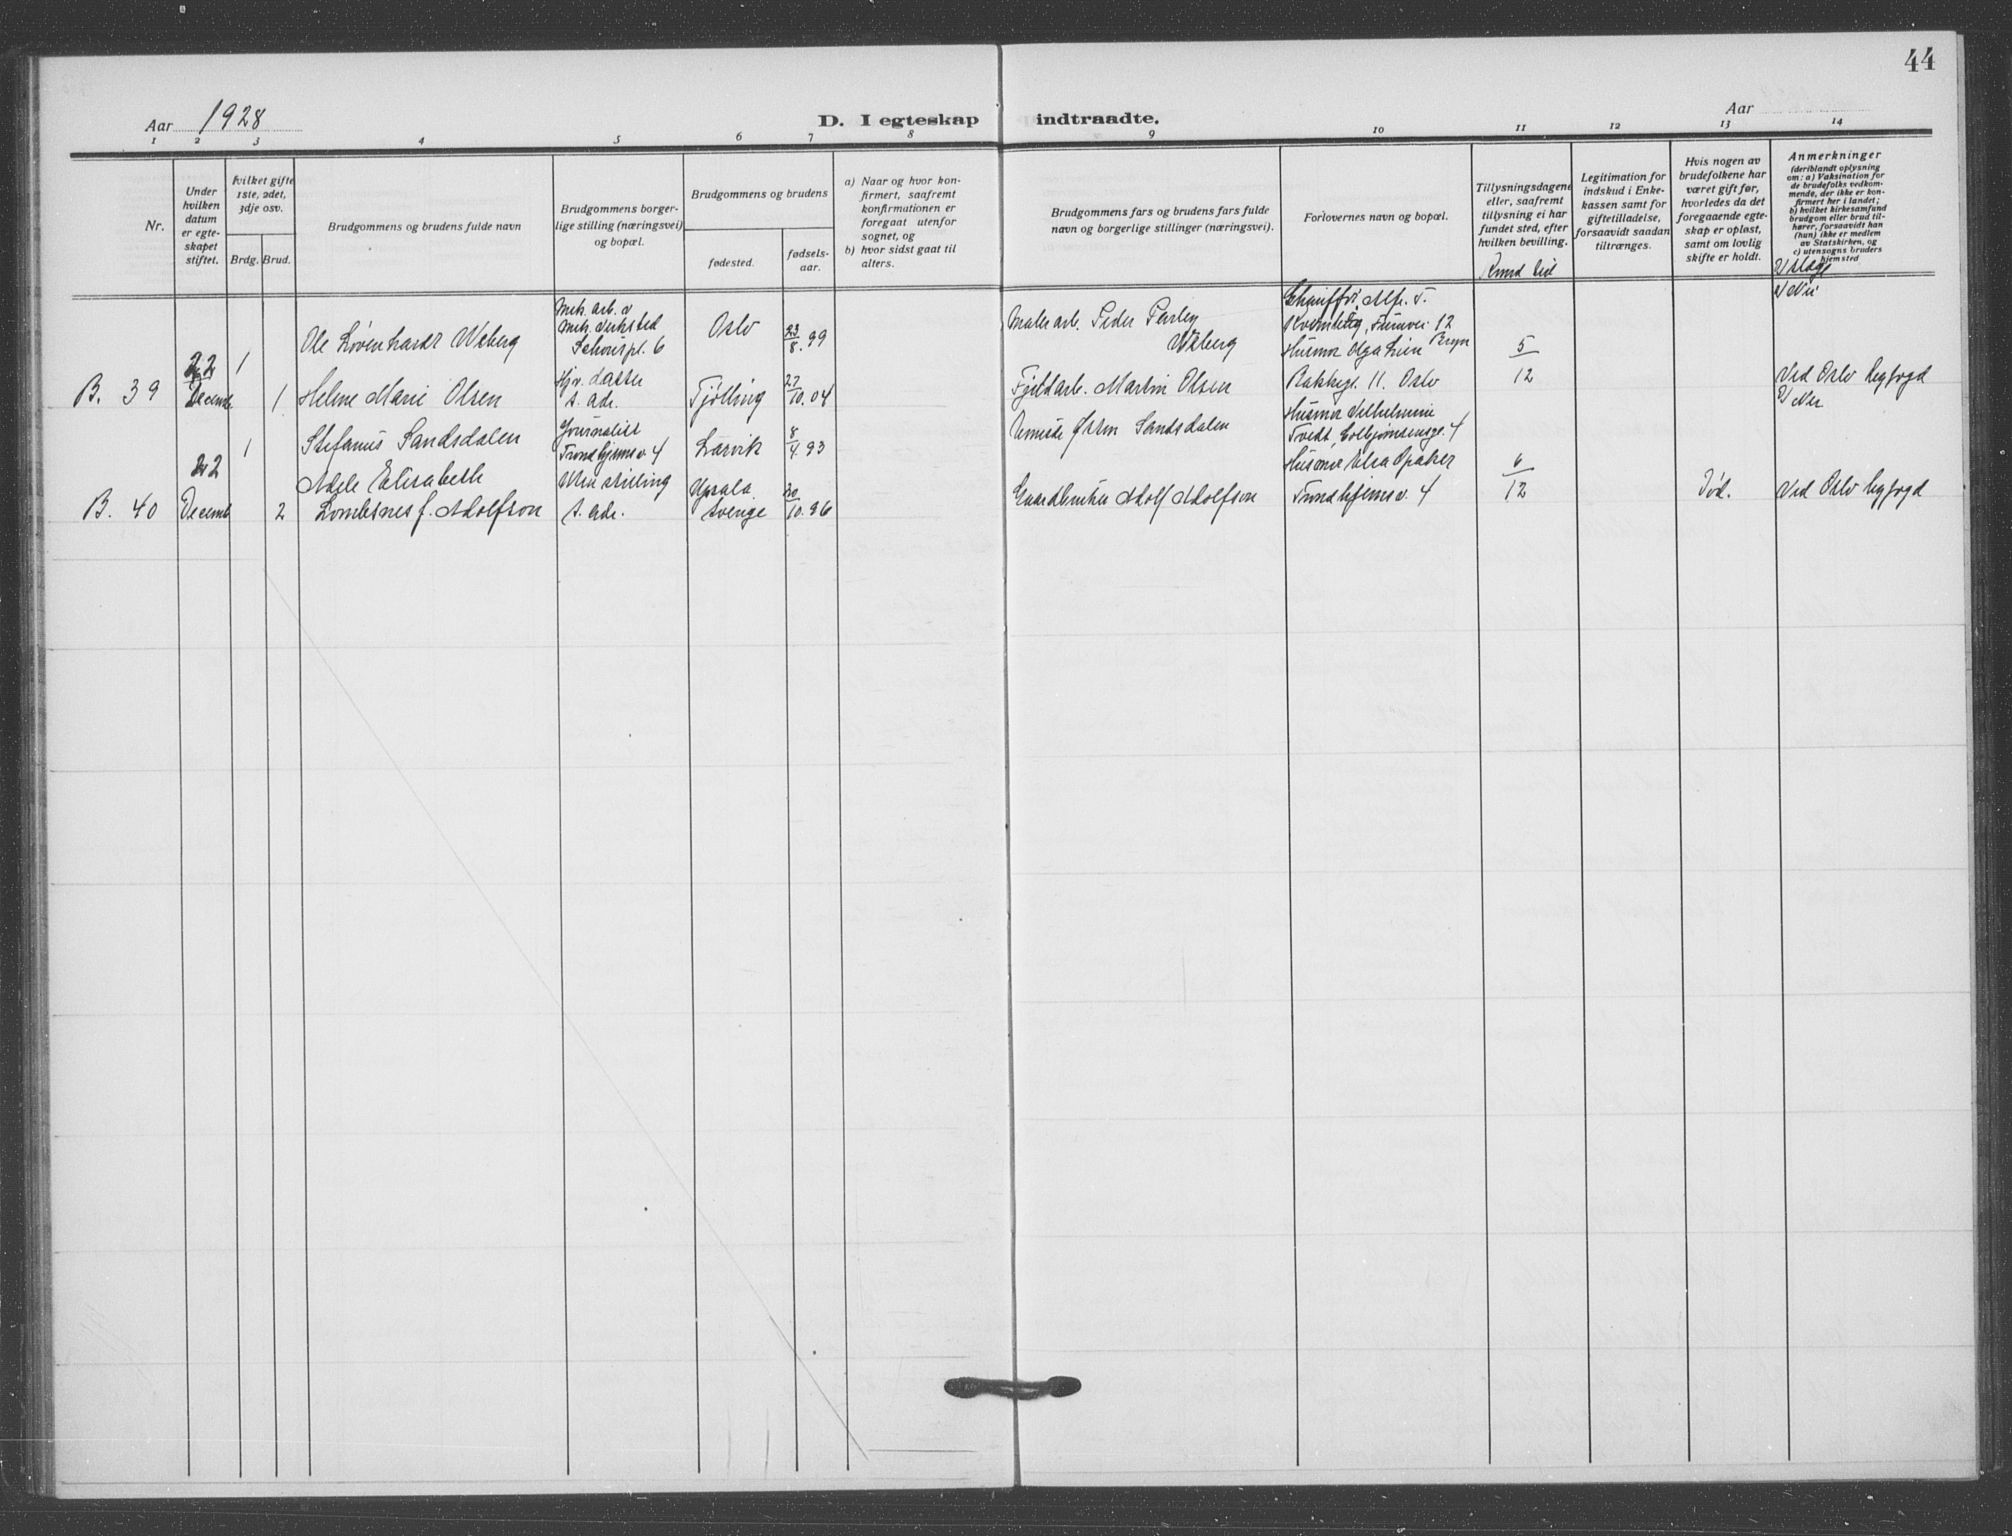 44
Aar 1928
D. I egteskap indtraadte.
Aar
1 2 3 4 5 6 7 8 9 10 11 12 13 14
Nr.
Under
hvilken
datum
er egte-
skapet
stiftet.
hvilket gifte
1ste, 2det,
3dje osv.
Brdg. Brud.
Brudgommens og brudens fulde navn
Brudgommens borger-
lige stilling (næringsvei)
og bopæl.
Brudgommens og brudens
fødested.
fødsels-
aar.
a) Naar og hvor kon-
firmert, saafremt
konfirmationen er
foregaat utenfor
sognet, og
b) hvor sidst gaat til
alters.
Brudgommens fars og brudens fars fulde
navn og borgerlige stillinger (næringsvei).
Forlovernes navn og bopæl.
Tillysningsdagene
eller, saafremt
tillysning ei har
fundet sted, efter
hvilken bevilling.
Legitimation for
indskud i Enke-
kassen samt for
giftetilladelse,
forsaavidt saadan
tiltrænges.
Hvis nogen av
brudefolkene har
været gift før,
hvorledes da det
foregaaende egte-
skap er opløst,
samt om lovlig
skifte er holdt.
Anmerkninger
(deriblandt oplysning
om: a) Vaksination for
de brudefolks vedkom-
mende, der ikke er kon-
firmert her i landet;
b) hvilket kirkesamfund
brudgom eller brud til-
hører, forsaavidt han
(hun) ikke er medlem
av Statskirken, og
c) utensogns bruders
hjemsted
B. 39
22
Decemb.
1
Ole Løvenhardt Wiberg
Mek. arb. v
Mek. verksted
Schouspl. 6
Oslo
23/8. 99
Malerarb. Peder
Wiberg
Chauffør Alfr.
12
Bryn
Husmor Olga Lien
5/12
1
Helene Marie Olsen
Hjv. datter
s. adr.
Tjølling
27/10. 04
Fjeldarb. Martin Olsen
Bakkegt. 11. Oslo
Ved Oslo byfogd
B. 40
22
Decemb.
1
Stefanus Sandsdalen
Journalist
Trondhjemsv. 4
Larvik
8/4. 93
Sandsdalen
Husmor Vilhelmine
Tvedt, 4
2
Adele Elisabeth
Lombsnes f. Adolfson
Uten stilling
s. adr.
Upsala
Sverige
20/10. 96
Gaardbruker Adolf Adolfson
Husmor Elsa Opaker
Trondhjemsv. 4
6/12
Død.
Ved Oslo byfogd